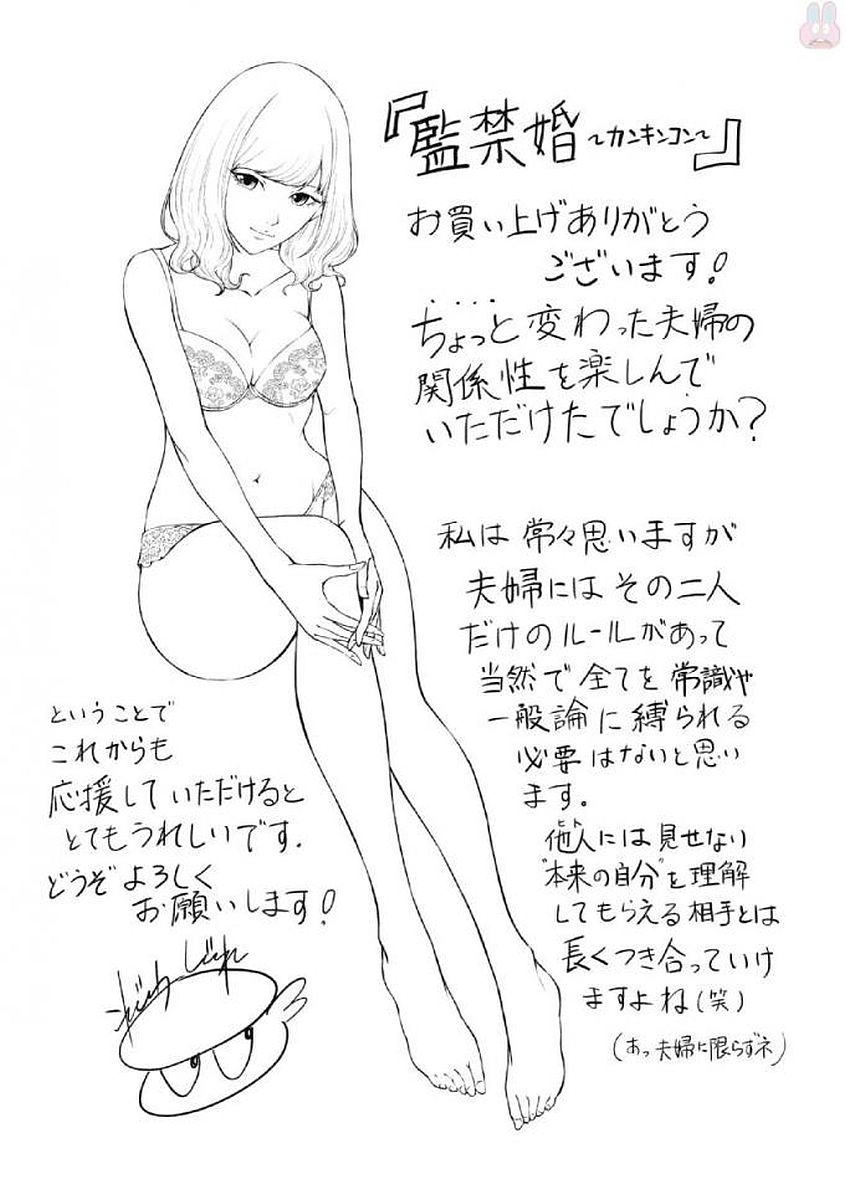 『監禁婚〜カンキンコン〜』
お買い上げありがとう
ございます!
ちょっと変わった夫婦の
関係性を楽しんで
いただけたでしょうか?
私は常々思いますが
夫婦にはその二人
だけのルールがあって
当然で全てを常識や
一般論に縛られる
必要はないと思い
ます。
他人には見せない
ヒト
"本来の自分"を理解
してもらえる相手とは
長くつき合っていけ
ますよね(笑)
(あっ夫婦に限らずネ)
ということで
これからも
応援していただけると
とてもうれしいです.
どうぞよろしく
お願いします!